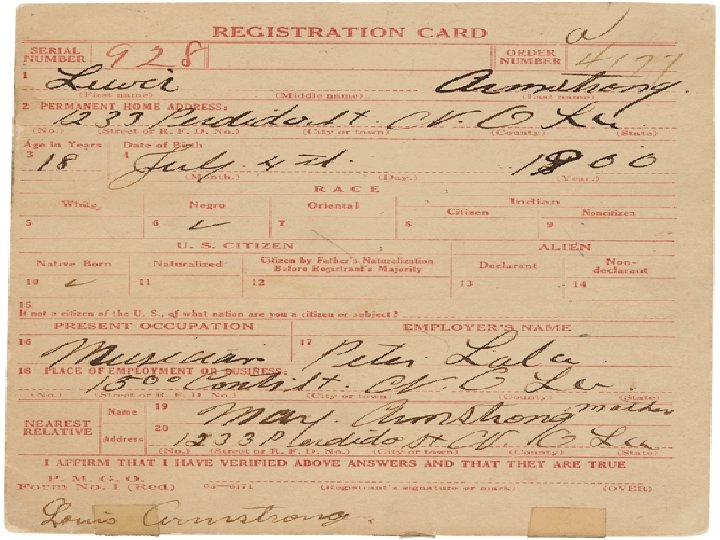 REGISTRATION CARD
SERIAL NUMBER 928 ORDER NUMBER 4177
1 Lewis Armstrong.
(First name) (Middle name) (Last name)
2 PERMANENT HOME ADDRESS:
1233 Perdido St. N. O La
(No.) (Street or R. F. D. No.) (City or town) (County) (State)
Age in Years Date of Birth
3 18 4 July. 4th. 1900
(Month.) (Day.) (Year.)
RACE
White Negro Oriental Indian
Citizen Noncitizen
5 6 ✓ 7 8 9
U. S. CITIZEN ALIEN
Native Born Naturalized Citizen by Father's Naturalization Before Registrant's Majority Declarant Non-declarant
10 ✓ 11 12 13 14
15
If not a citizen of the U. S., of what nation are you a citizen or subject?
PRESENT OCCUPATION EMPLOYER'S NAME
16 Musician 17 Peter Lala.
18 PLACE OF EMPLOYMENT OR BUSINESS:
1500 Conti St. N. O La
(No.) (Street or R. F. D. No.) (City or town) (County) (State)
NEAREST RELATIVE Name 19 May. Armstrong mother
Address 20 1233 Perdido St N. O La
(No.) (Street or R. F. D. No.) (City or town) (County) (State)
I AFFIRM THAT I HAVE VERIFIED ABOVE ANSWERS AND THAT THEY ARE TRUE
P. M. G. O.
Form No. 1 (Red) 03—6171 (Registrant's signature or mark) (OVER)
Louis Armstrong.